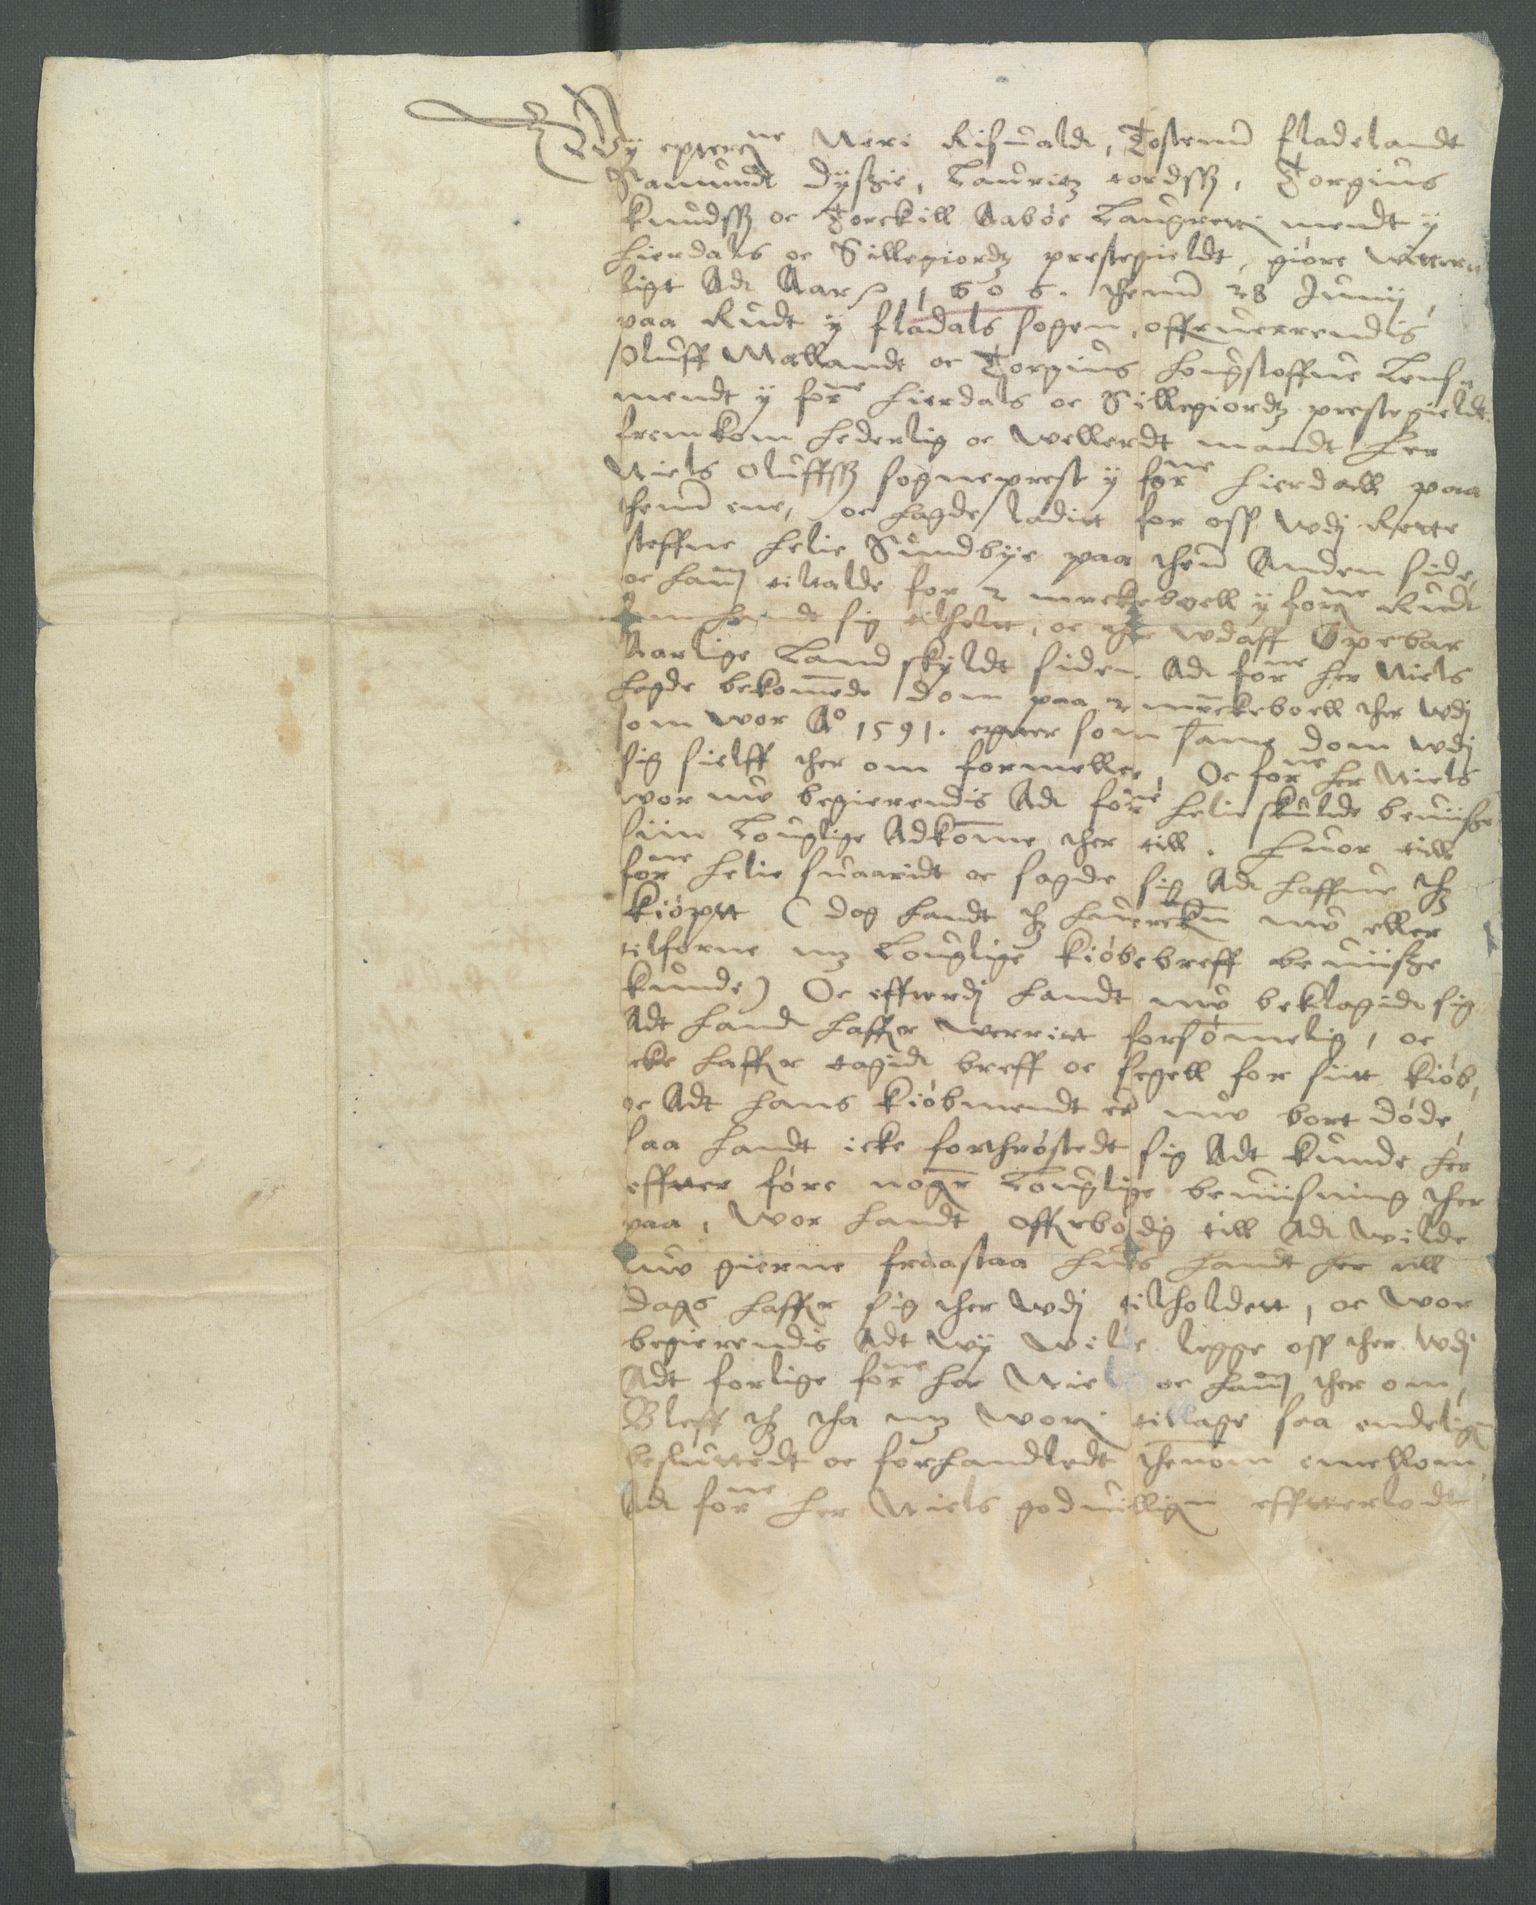 Wy epterne Neri Risuald, Tostenn fladelandt
Samundt dysze, Lauritz tordssz, Torgius
Knudssz oc Torckill Aabøe Laugrettj mendt y
Hierdals oc Sillegiordz prestegieldt, giøre witter
ligt Ad Aar 1606. thenn 28 Junij,
paa Rudt y fladals sogen, offueruerrendis
Oluff Mællandt oc Torgius Hougstoffue Lens
mendt y forne Hierdals oc Sillegiordz prestegieldt
fremkom Hederlig oc wellerdt mandt Her
Niels Oluffssz sogneprest y forne Hierdall paa
thenn ene, oc Hagde ladit for oss wdj Rette
steffne Helie Sundbye paa thenn Anden side,
oc hannom tiltalde for 2 mrckeboell y forne Rudt
sig tilholt, oc wdaff Opebar
Aarlige Landskyldt siden Ad forne Her Niels
Hagde bekommede dom paa 2 mrckeboell ther wdj
som wor Ao 1591. epter som same dom wdj
sig sielff ther om formeller, Oc forne Her Niels
wor nw begierendis Ad forne Helie skulde beuisze
siin Louglige Adkomme ther till. Huor till
forne Helie suaaridt oc sagde sig Ad haffue thz
kiøptt (dog handt thz huerckenn nw eller
tilforne mz Louglige kiøbebreff beuiisze
kunde) Oc effterdj handt nw beklagide sig
Adt hand haffer werrit forsømelig, oc
icke haffer tagid breff oc segell for siitt kiøb,
oc Adt hans kiøbmendt er nw bort døde
saa handt icke forthrøstedt sig Adt kunde her
effter føre nogenn Louglige beuiisning ther
paa, wor handt offuerbødig till Ad wilde
nw gierne fraastaa huis handt her till
dags haffer sig ther wdj tilholdett, oc wor
begierendis Adt wy wilde ligge oss ther wdj
Adt forlige forne Her Niels oc hannom ther om,
Bleff thz tha mz wori tillage saa endelig
besluttedt oc forhandledt thennom emellom,
Ad forne Her Niels goduilligen effterlodt